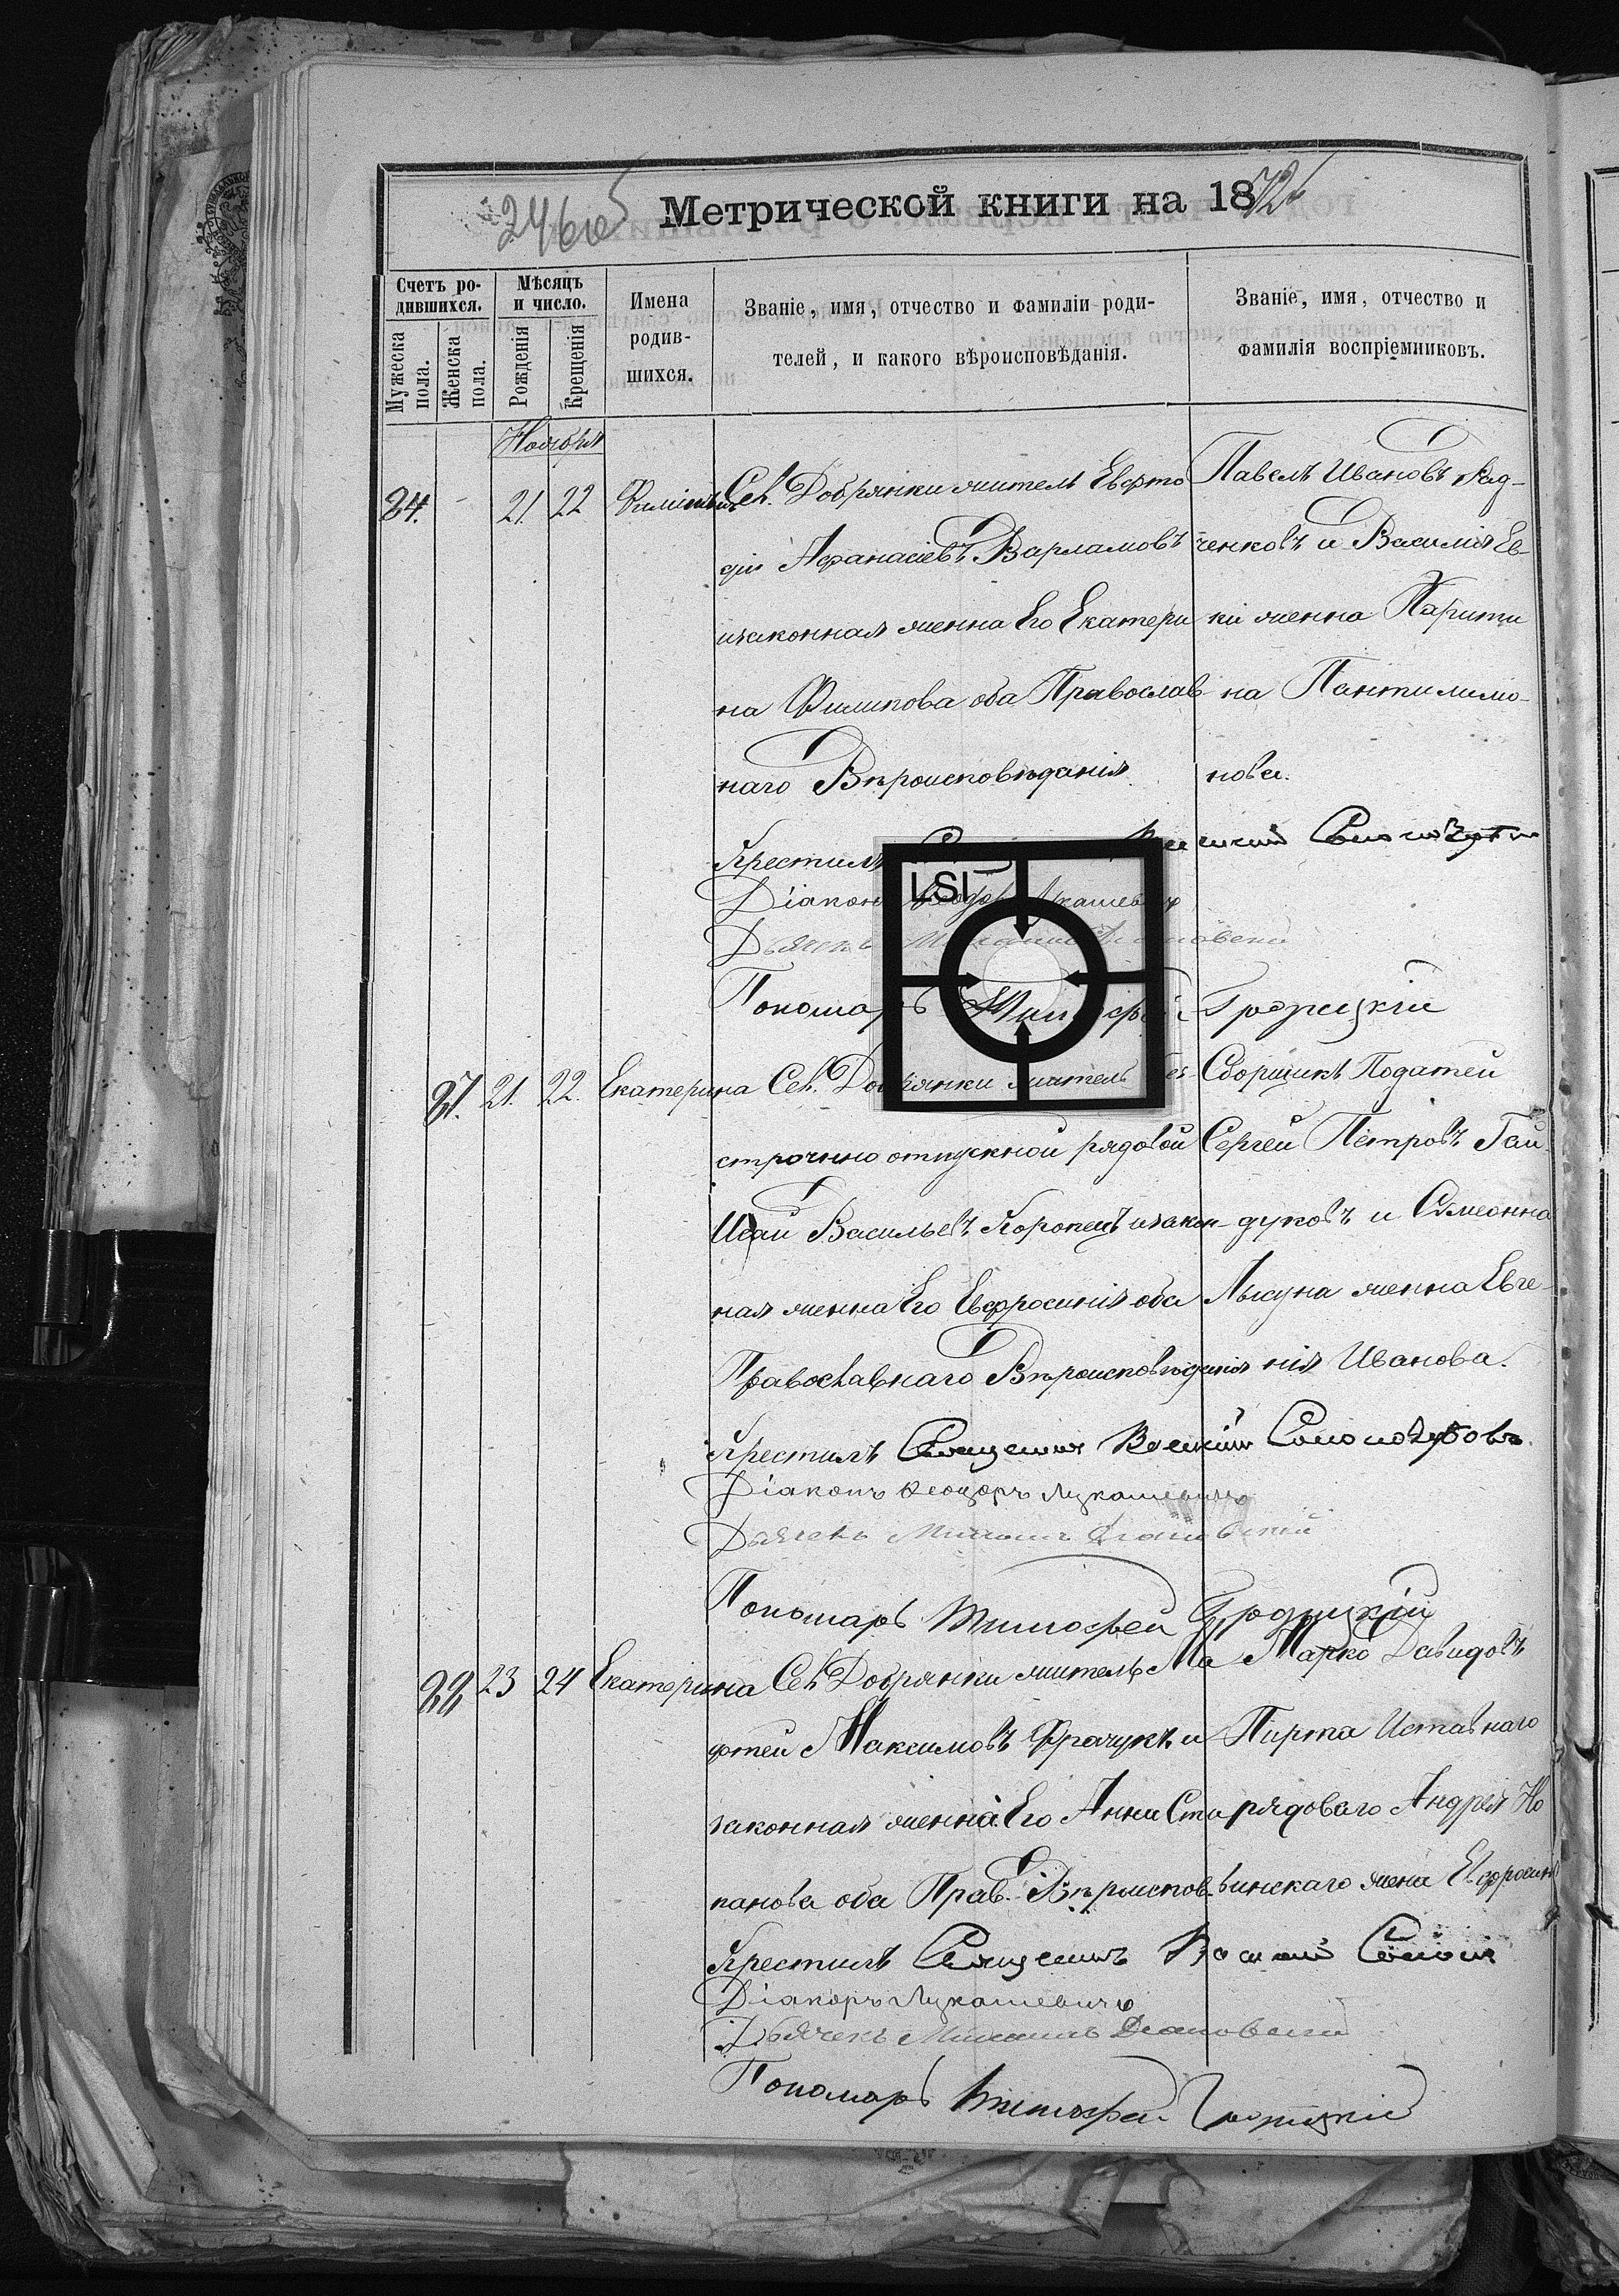 246об
Метрической книги на 1872
Счетъ ро-
дившихся.
Мужеска
пола.
Женска
пола.
Мѣсяцъ
и число.
Рожденія
Крещенія
Имена
родив-
шихся.
Званіе, имя, отчество и фамиліи роди-
телей, и какого вѣроисповѣданія.
Званіе, имя, отчество и
фамилія воспріемниковъ.
Ноября
84. - 21. 22 Сел. Добрянки житель Еврто
фій Афанасіевъ Варламовъ
изаконная женна Его Екатери
на Филипова оба Православ
наго Вѣроисповѣданія
Павелъ Ивановъ Рад-
ченковъ и Василія Ев-
ки женна Харити
на Пантилимо-
нова.
Крестилъ
LSI
Діаконъ
Пономарь Тимофей Гродицкій
21. 22. Екатерина Сел. Добрянки житель без
строчно отпускной рядовой
Исай Васильевъ Коропецъ изакон-
ная женна Его Евфросинія оба
Православнаго Вѣроисповѣданія
Сборщикъ Податей
Сергей Петровъ Гай-
дуковъ и Симеонна
Лысуна женна Евге-
нія Иванова.
Крестилъ Священникъ
Діаконъ Феодоръ Лукашевичъ
Дьячекъ Михаилъ
Пономарь Тимофей Гродицкій
23 24 Екатерина Сел Добрянки житель Ма
фтей Максимовъ и
законная женна Его Анна Сти
панова оба Прав. Вѣроисповѣ.
Марко Давидовъ
Пирта Иставнаго
рядоваго Андрея Но
винскаго жена Евфросинія
Крестилъ Священникъ
Діаконъ Лукашевичъ
Дьячекъ Михаилъ
Пономарь Тимофей Гродицкій